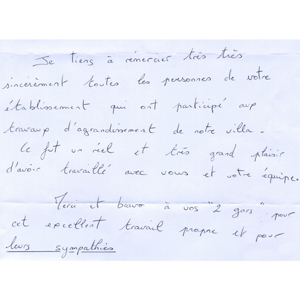 Je tiens à remercier très très
sincèrement toutes les personnes de votre
établissement qui ont participé aux
travaux d'agrandissement de notre villa.
Ce fut un réel et très grand plaisir
d'avoir travaillé avec vous et votre équipe.
Merci et bravo à vos "2 gars" pour
cet excellent travail propre et pour
leurs sympathies